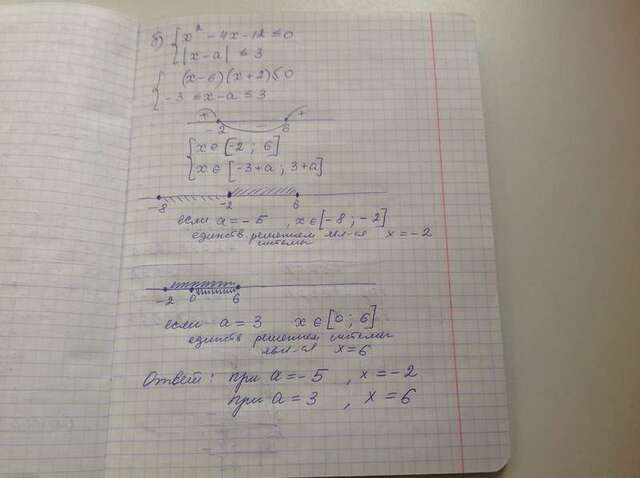 б) { x² - 4x - 12 ≤ 0
|x - a| ≤ 3
{ (x-6)(x+2) ≤ 0
-3 ≤ x - a ≤ 3
+ - +
-2 6
{ x ∈ [-2 ; 6]
x ∈ [-3+a ; 3+a]
-8 -2 6
если a = -5 , x ∈ [-8 ; -2]
единств. решением явл-ся x = -2
системы
-2 0 6
если a = 3 x ∈ [0 ; 6]
единств решением системы
явл-ся x = 6
Ответ: при a = -5 , x = -2
при a = 3 , x = 6